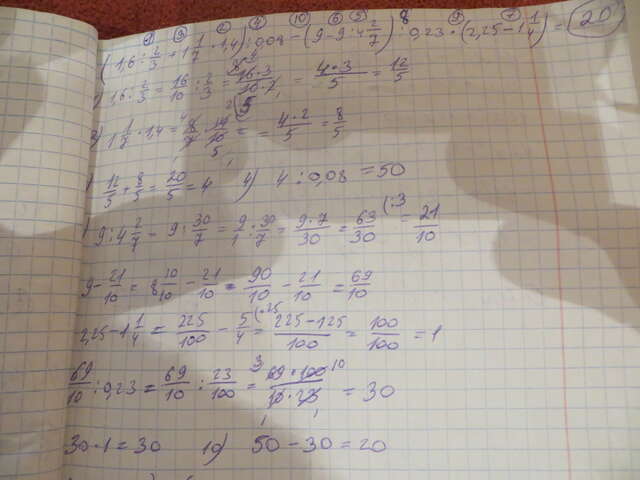 ① ③ ② ④ ⑩ ⑥ ⑤ 8 ⑨ ⑦
(1,6 : 2/3 + 1 1/7 · 1,4) : 0,08 − (9 − 9 : 4 2/7) : 0,23 · (2,25 − 1 1/4) = 20
) 1,6 : 2/3 = 16/10 : 2/3 = 16·3/10·2 = 4·3/5 = 12/5
2) 1 1/7 · 1,4 = 8/7 · 14/10 = 4·2/5 = 8/5
) 12/5 + 8/5 = 20/5 = 4 4) 4 : 0,08 = 50
) 9 : 4 2/7 = 9 : 30/7 = 9/1 : 30/7 = 9·7/30 = 63/30 (:3 = 21/10
9 − 21/10 = 8 10/10 − 21/10 = 90/10 − 21/10 = 69/10
2,25 − 1 1/4 = 225/100 − 5/4 (·25 = 225−125/100 = 100/100 = 1
69/10 : 0,23 = 69/10 : 23/100 = 69·100/10·23 = 30
30·1 = 30 10) 50 − 30 = 20